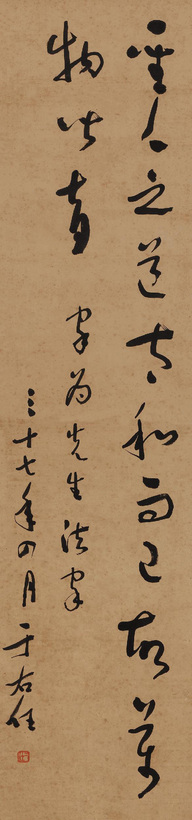 聖人之道太和而已故萬
物皆育
家為先生法家
三十七年四月于右任